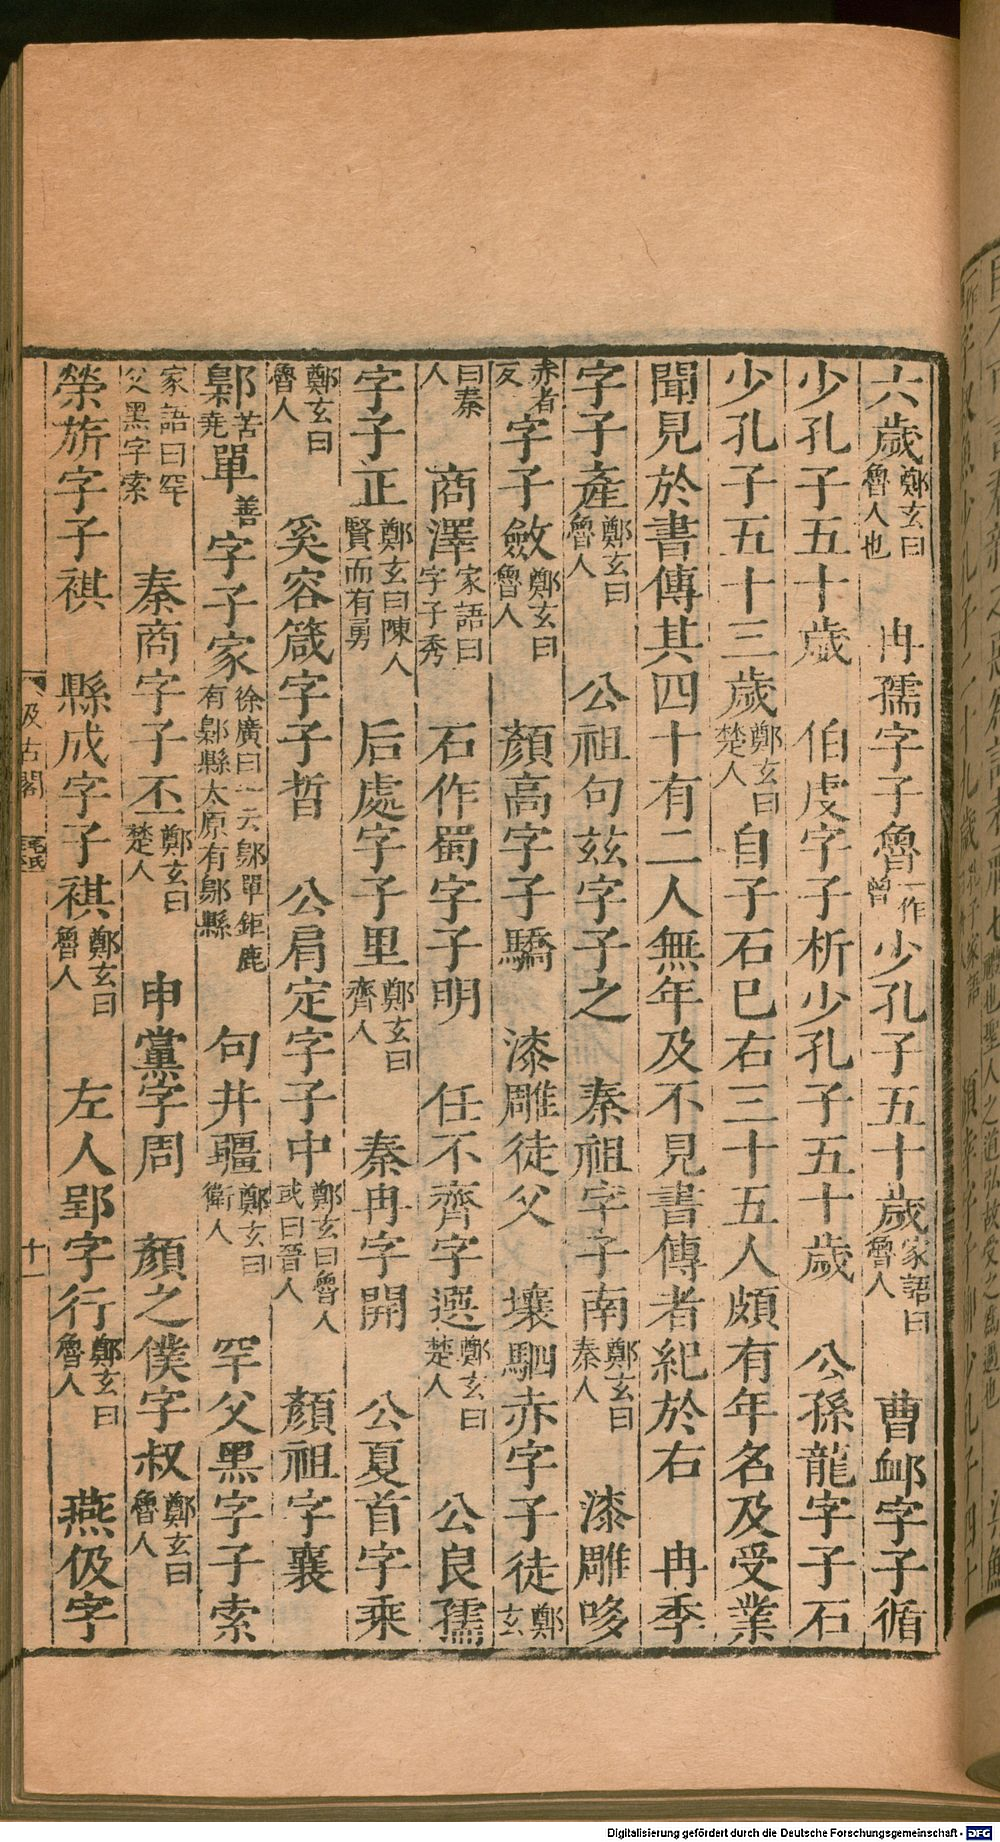 六歲鄭玄曰魯人也 冉孺字子魯一作曾少孔子五十歲家語曰魯人 曹卹字子循
少孔子五十歲 伯虔字子析少孔子五十歲 公孫龍字子石
少孔子五十三歲鄭玄曰楚人 自子石已右三十五人頗有年名及受業
聞見於書傳其四十有二人無年及不見書傳者紀於右 冉季
字子產鄭玄曰魯人 公祖句茲字子之 秦祖字子南鄭玄曰秦人 漆雕哆
赤者反字子斂鄭玄曰魯人 顏高字子驕 漆雕徒父 壤駟赤字子徒鄭玄
曰秦人 商澤家語曰字子秀 石作蜀字子明 任不齊字選鄭玄曰楚人 公良孺
字子正鄭玄曰陳人賢而有勇 后處字子里鄭玄曰齊人 秦冉字開 公夏首字乘
鄭玄曰魯人 奚容箴字子晳 公肩定字子中鄭玄曰魯人或曰晉人 顏祖字襄
鄡苦堯單善字子家徐廣曰一云鄔單鉅鹿有鄡縣太原有鄔縣 句井疆鄭玄曰衛人 罕父黑字子索
家語曰罕父黑字索 秦商字子丕鄭玄曰楚人 申黨字周 顏之僕字叔鄭玄曰魯人
榮旂字子祺 縣成字子祺鄭玄曰魯人 左人郢字行鄭玄曰魯人 燕伋字
汲古閣 毛氏
十一
Digitalisierung gefördert durch die Deutsche Forschungsgemeinschaft - DFG